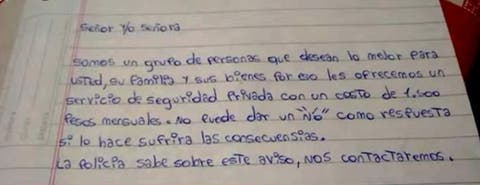 señor y/o señora
somos un grupo de personas que desean lo mejor para
usted, su familia y sus bienes por eso les ofrecemos un
servicio de seguridad privada con un costo de 1.500
pesos mensuales. No puede dar un "NO" como respuesta
si lo hace sufrira las consecuensias.
La policia sabe sobre este aviso, nos contactaremos.